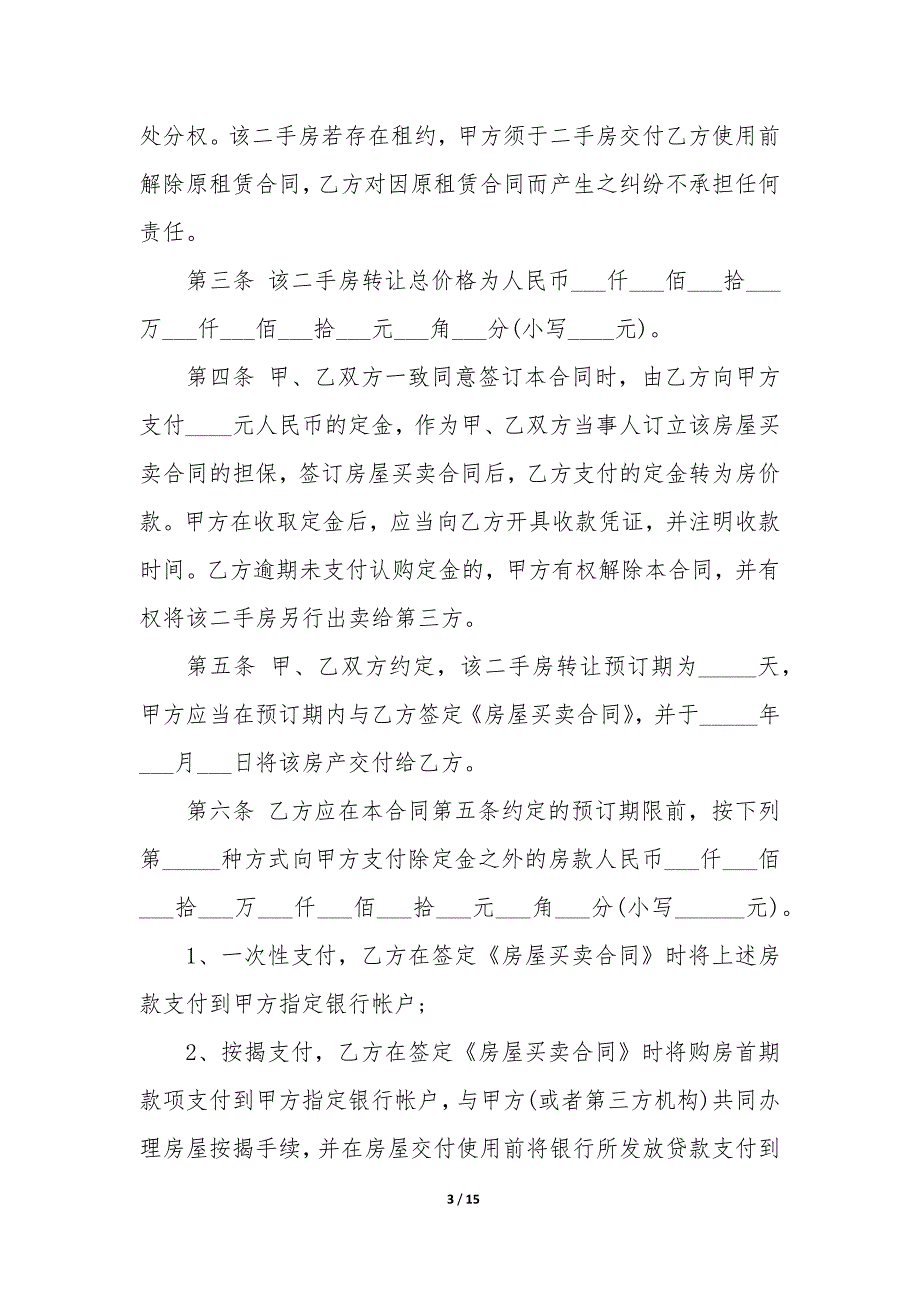 处分权。该二手房若存在租约，甲方须于二手房交付乙方使用前
解除原租赁合同，乙方对因原租赁合同而产生之纠纷不承担任何
责任。
第三条 该二手房转让总价格为人民币___仟___佰___拾___
万___仟___佰___拾___元___角___分(小写____元)。
第四条 甲、乙双方一致同意签订本合同时，由乙方向甲方
支付____元人民币的定金，作为甲、乙双方当事人订立该房屋买
卖合同的担保，签订房屋买卖合同后，乙方支付的定金转为房价
款。甲方在收取定金后，应当向乙方开具收款凭证，并注明收款
时间。乙方逾期未支付认购定金的，甲方有权解除本合同，并有
权将该二手房另行出卖给第三方。
第五条 甲、乙双方约定，该二手房转让预订期为_____天，
甲方应当在预订期内与乙方签定《房屋买卖合同》，并于_____年
___月___日将该房产交付给乙方。
第六条 乙方应在本合同第五条约定的预订期限前，按下列
第_____种方式向甲方支付除定金之外的房款人民币___仟___佰
___拾___万___仟___佰___拾___元___角___分(小写______元)。
1、一次性支付，乙方在签定《房屋买卖合同》时将上述房
款支付到甲方指定银行帐户;
2、按揭支付，乙方在签定《房屋买卖合同》时将购房首期
款项支付到甲方指定银行帐户，与甲方(或者第三方机构)共同办
理房屋按揭手续，并在房屋交付使用前将银行所发放贷款支付到
3 / 15